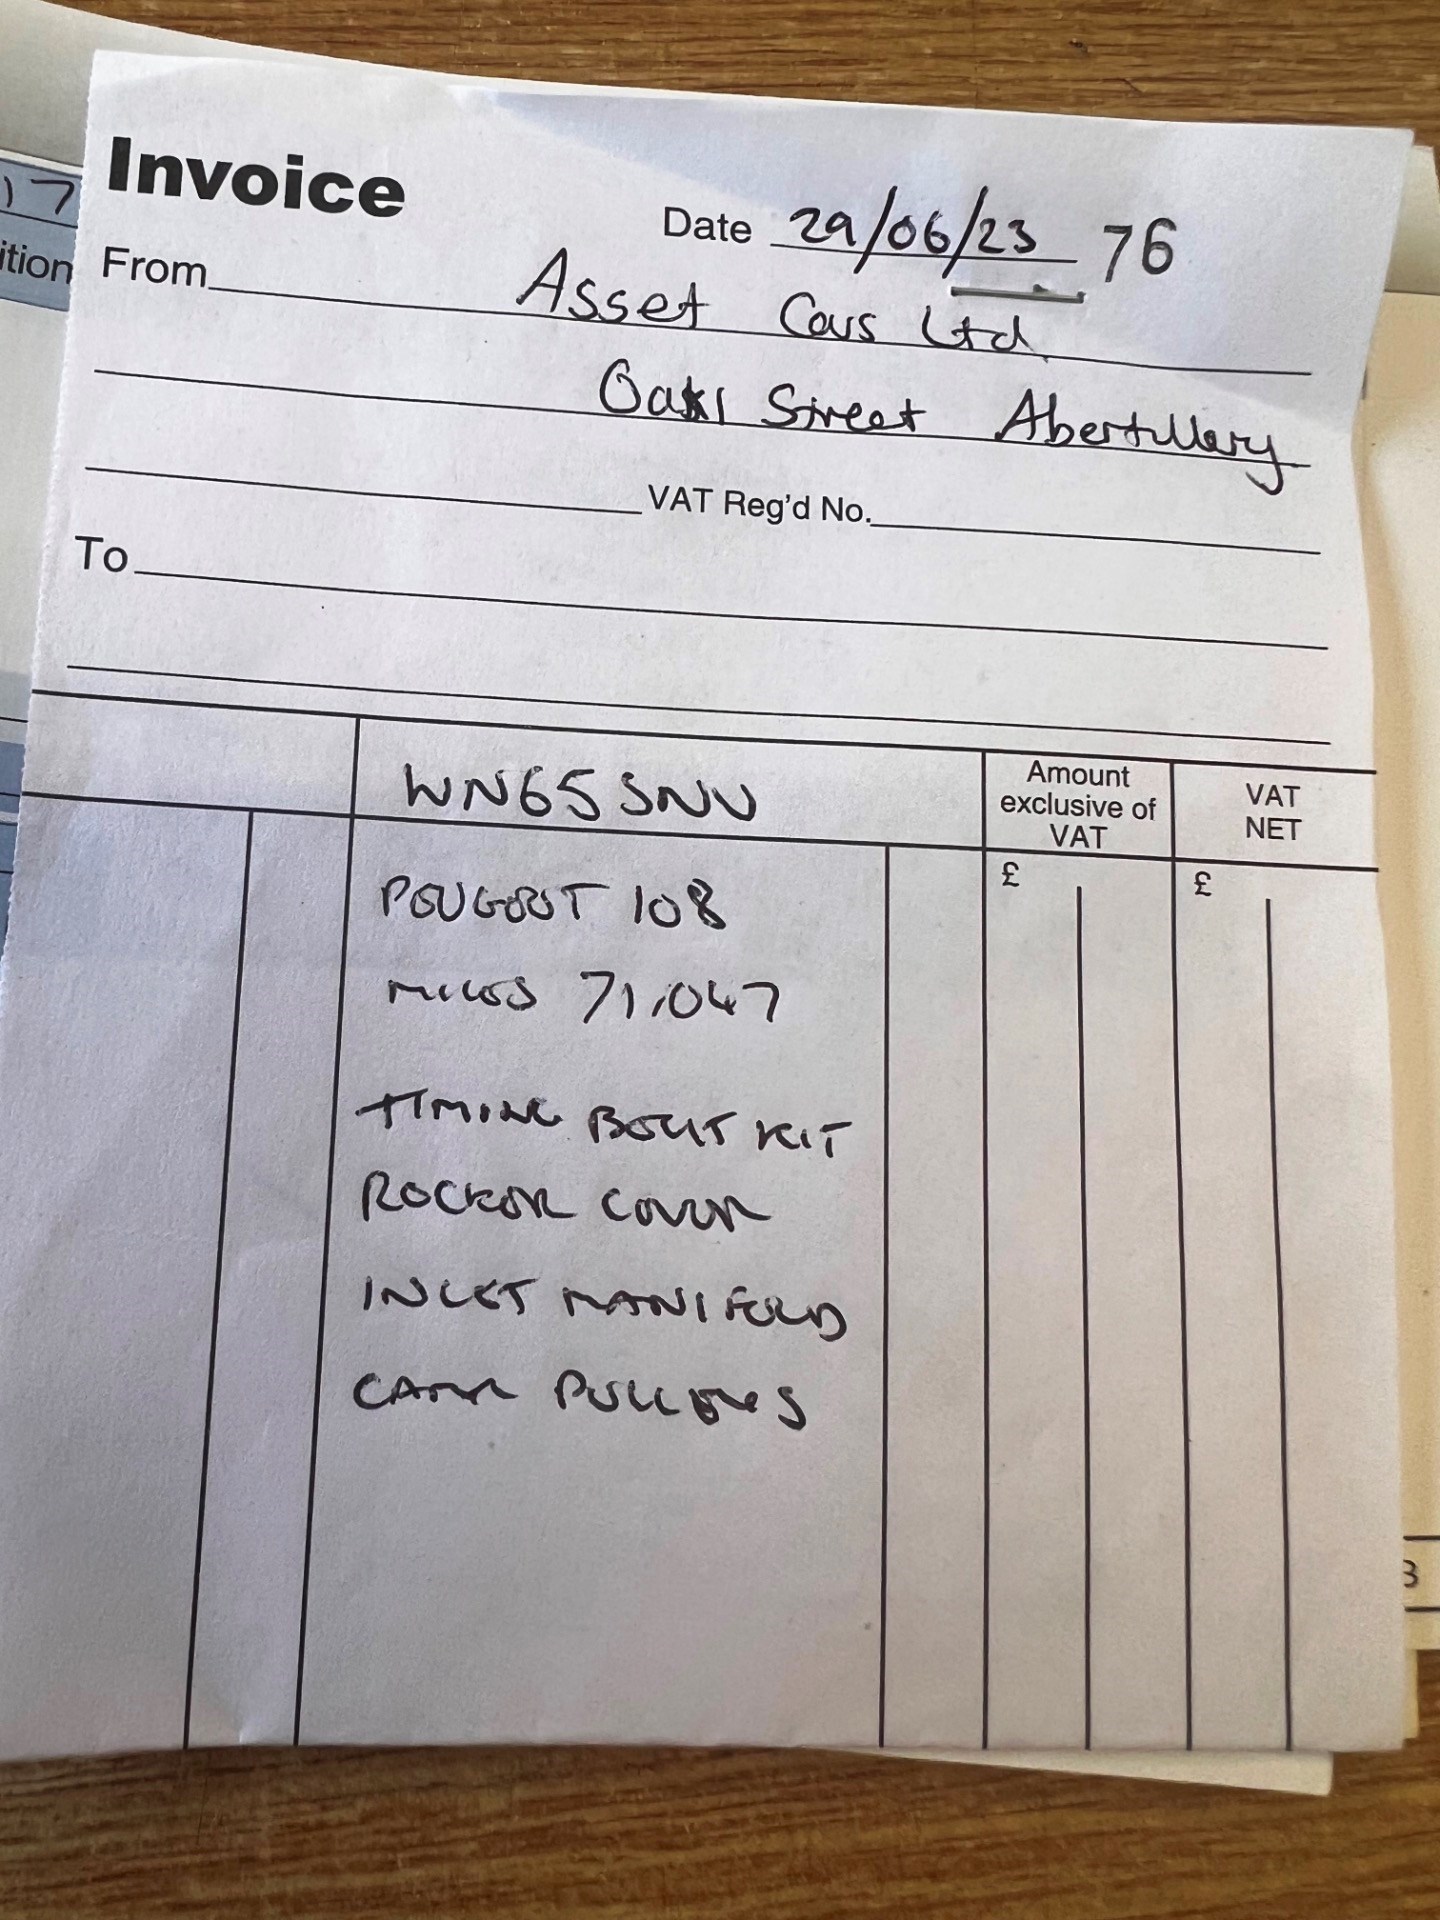 Invoice
17
ition
Date 29/06/23 76
From Asset Cars Ltd
Street Abertillery
VAT Reg'd No.
To
WN65 SNV
Amount exclusive of VAT
VAT NET
£ £
PEUGEOT 108
MILES 71,047
TIMING BELT KIT
ROCKER COVER
INLET MANIFOLD
CAM PULLEYS
3